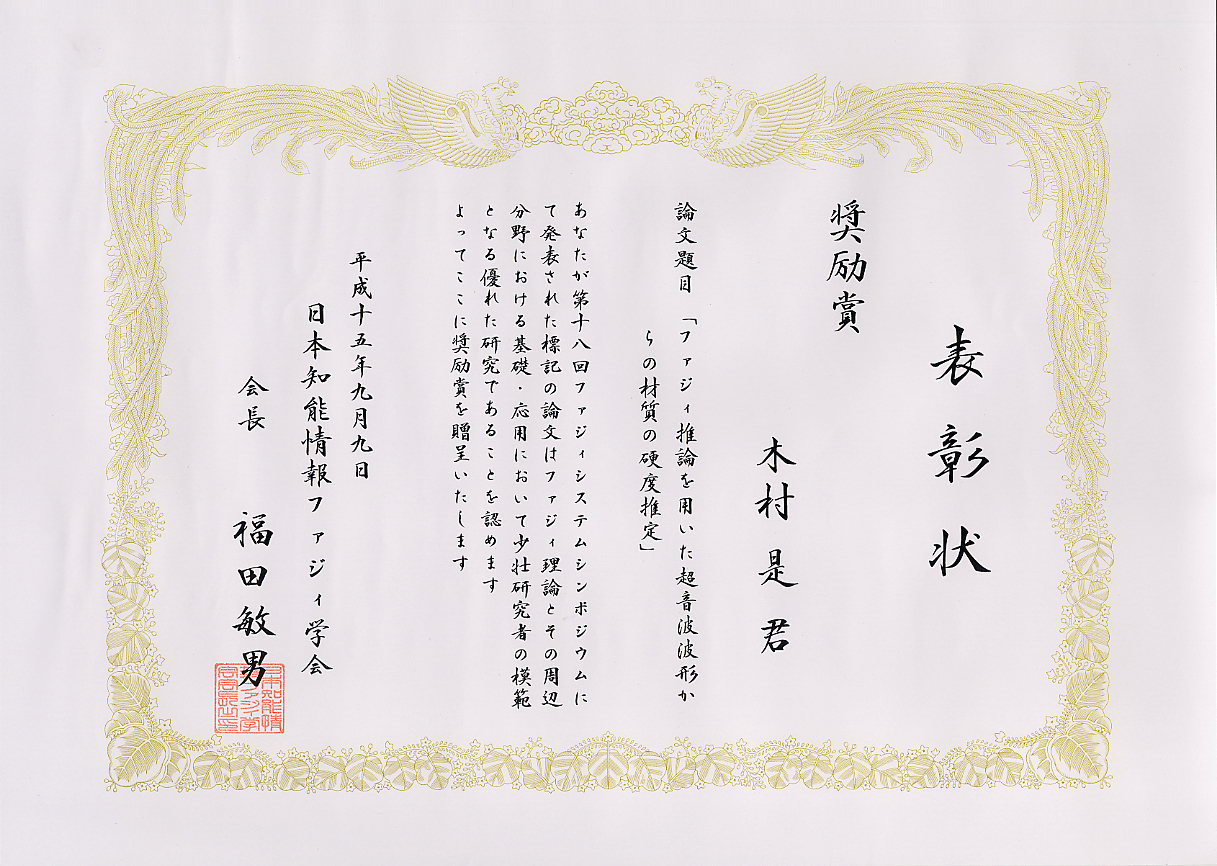 表彰状
木村是君
奨励賞
論文題目「ファジィ推論を用いた超音波波形か
らの材質の硬度推定」
あなたが第十八回ファジィシステムシンポジウムに
て発表された標記の論文はファジィ理論とその周辺
分野における基礎・応用において少壮研究者の模範
となる優れた研究であることを認めます
よってここに奨励賞を贈呈いたします
平成十五年九月九日
日本知能情報ファジィ学会
会長 福田敏男